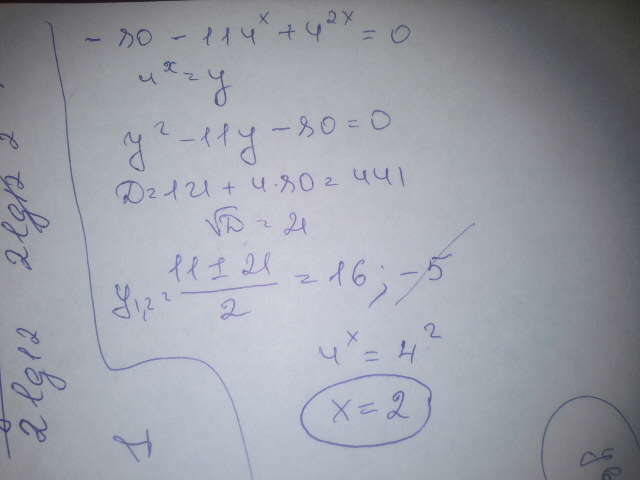 - 80 - 11 4^x + 4^{2x} = 0
4^x = y
y² - 11y - 80 = 0
D = 121 + 4·80 = 441
√D = 21
y_{1,2} = \frac{11 ± 21}{2} = 16; -5
4^x = 4²
x = 2
2 lg12 2
2 lg12
1